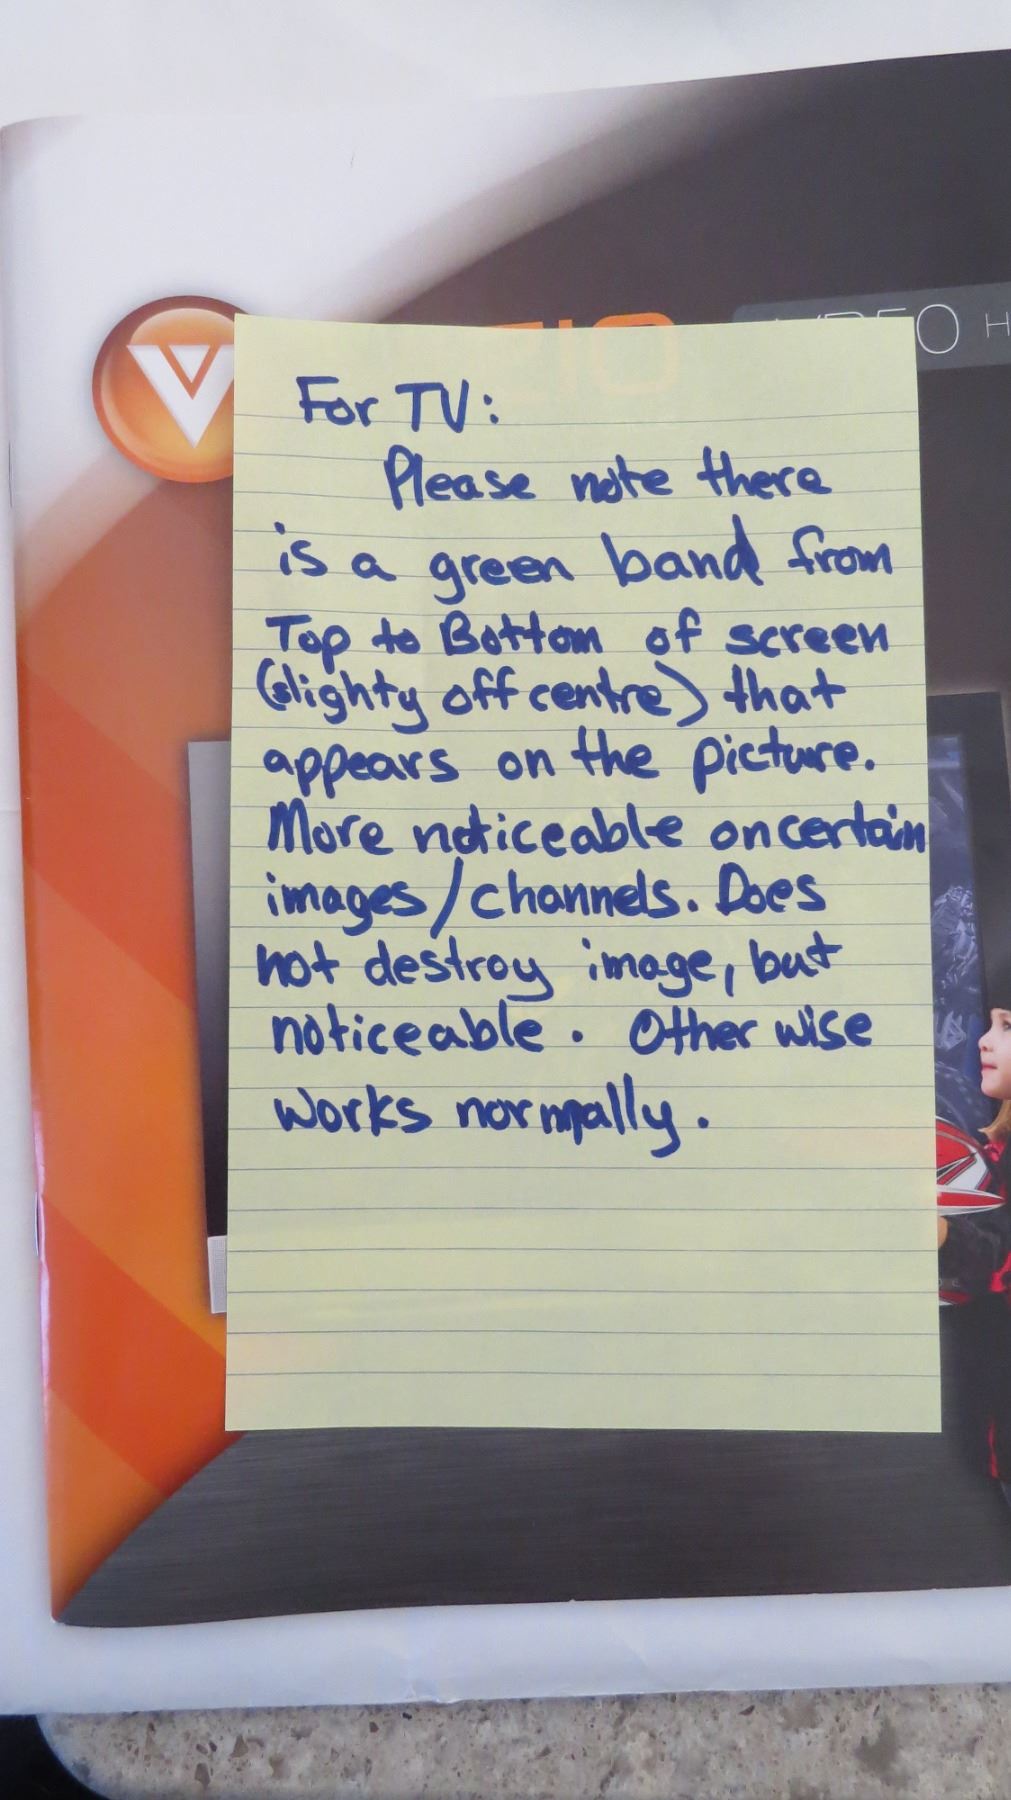 V
ZIO
VIDEO H
For TV:
Please note there
is a green band from
Top to Bottom of screen
(slighty off centre) that
appears on the picture.
More noticeable on certain
images/channels. Does
not destroy image, but
noticeable. Other wise
works normally.